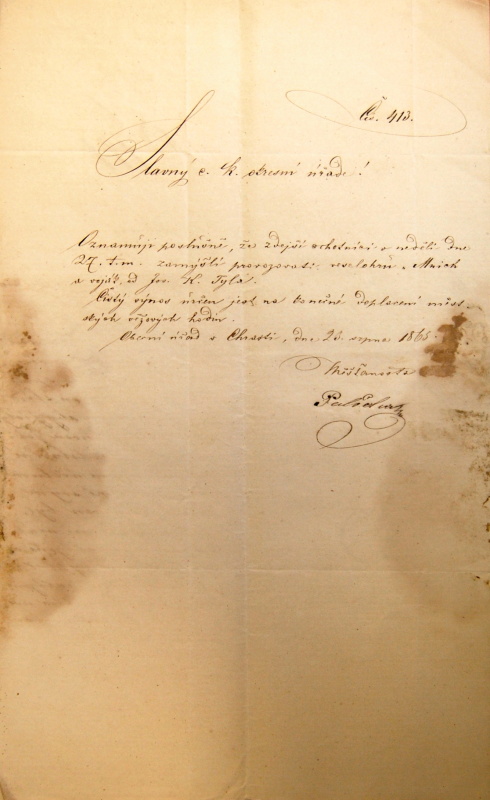 Čís. 413.
Slavný c. k. okresní úřade!
Oznamuji poslušně, že zdejší ochotníci v neděli dne
27. t. m. zamýšlí provozovati veselohru „Mnich
a voják, od Jos. K. Tyla.
Čistý výnos určen jest na konečné doplacení měst-
ských věžových hodin.
Obecní úřad v Chrasti, dne 23. srpna 1865.
Měšťanosta